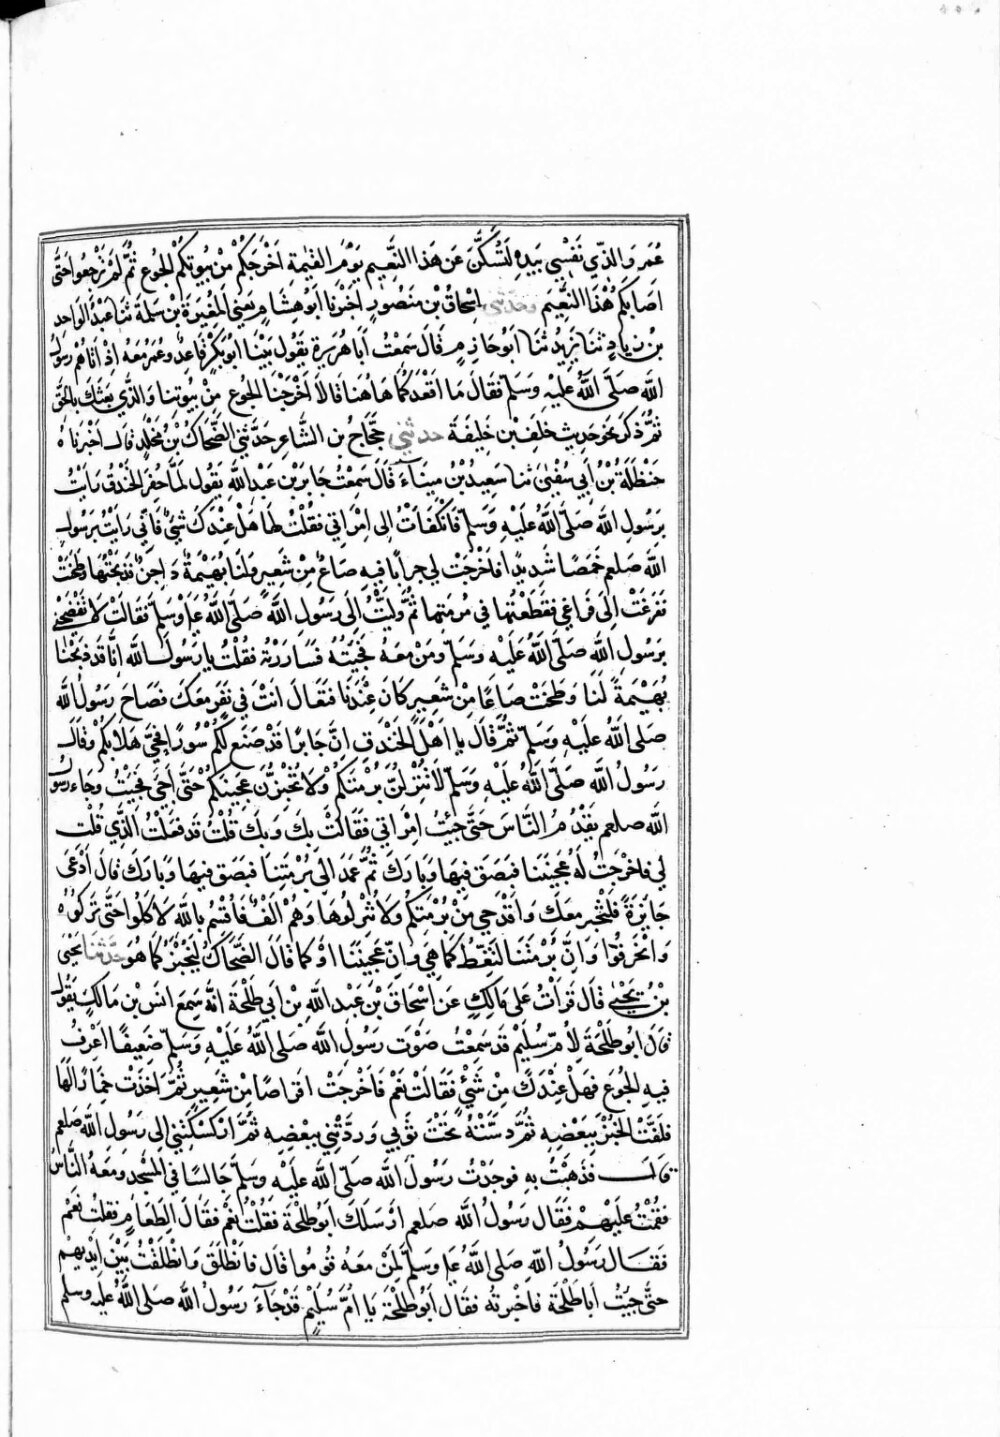 عُمَرَ وَالَّذِي نَفْسِي بِيَدِهِ لَتُسْئَلُنَّ عَن هَذَا النَّعِيْمِ يَوْمَ القِيٰمَةِ اَخْرَجَكُمْ مِنْ بُيُوتِكُمُ الجُوعُ ثُمَّ لَمْ تَرْجِعُوا حَتَّى
اَصَابَكُمْ هٰذَا النَّعِيْمُ وحَدَّثني اِسْحَاقُ بْن مَنصُوْرٍ اَخبَرنا اَبُوْ هِشَامٍ يعني المُغِيرَةَ بْنَ سَلَمَةَ ثَنَا عبدُ الوَاحِدِ
بْنُ زيادٍ ثنا يَزِيدُ ثَنَا اَبُو حَازِمٍ قَالَ سَمِعْتُ اَبَا هُرَيرَةَ يَقُول بَيْنَا اَبُو بَكْرٍ قَاعِدٌ وَعُمَرُ مَعَهُ اِذْ اَتَاهُم رَسُولُ
اللَّه صَلَّى اللَّهُ عَلَيْهِ وَسَلَّمَ فَقَالَ مَا اَقْعَدَكُمَا هَاهُنَا قَالَا اَخْرَجَنَا الجُوعُ مِنْ بُيُوتِنَا وَالَّذِي بَعَثَكَ بِالحَقِّ
ثُمَّ ذَكَرَ نَحوَ حَدِيثِ خَلَفِ بْنِ خَلِيفَةَ حدثني حَجَّاجُ بن الشَّاعِرِ حَدَّثَنِي الضَّحَّاكُ بْنُ مَخْلَدٍ قال اَخْبَرَنَاهُ
حَنْظَلَةُ بْنُ اَبِي سُفْيٰنَ ثنا سَعِيدُ بْنُ مِينَآءَ قَالَ سَمِعْتُ جَابِرَ بْنَ عَبْدِ اللَّهِ يَقُول لَمَّا حُفِرَ الخَنْدَقُ رَاَيْتُ
بِرَسُولِ اللَّه صَلَّى اللَّهُ عَلَيْهِ وَسَلَّمَ فَانْكَفَاْتُ اِلى اِمْرَاتِي فَقُلْتُ لَهَا هَلْ عِنْدَكِ شَيْءٌ فَاِنِّي رَاَيْتُ بِرَسُولِ
اللَّه صَلعم خَمَصًا شَدِيدًا فَاَخْرَجَتْ لِي جِرَابًا فِيهِ صَاعٌ مِنْ شَعِيرٍ وَلَنَا بُهَيْمَةٌ دَاجِنٌ فَذَبَحْتُهَا وَطَحَنَتْ
فَفَرَغَتْ اِلَى فَرَاغِي فَقَطَّعْتُهَا فِي بُرْمَتِهَا ثُمَّ وَلَّيْتُ اِلَى رَسُولِ اللَّه صَلَّى اللَّهُ عَلَيْهِ وَسَلَّمَ فَقَالَتْ لَا تَفْضَحْنِي
بِرَسُولِ اللَّه صَلَّى اللَّهُ عَلَيْهِ وَسَلَّمَ وَمَنْ مَعَهُ فَجِئتُهُ فَسَارَرْتُهُ فَقُلْتُ يا رَسُولَ اللَّه اِنَّا قَد ذَبَحْنَا
بُهَيْمَةً لَنَا وَطَحَنَتْ صَاعًا مِنْ شَعِيرٍ كَانَ عِنْدَنَا فَتَعَالَ اَنْتَ فِي نَفَرٍ مَعَكَ فَصَاحَ رَسُولُ اللَّه
صَلَى اللَّهُ عَلَيْهِ وَسَلَّمَ ثُمَّ قَالَ يا اَهْلَ الخَنْدَقِ اِنَّ جَابِرًا قَدْ صَنَعَ لَكُمْ سُورًا فَحَيَّ هَلًا بِكُمْ وَقَالَ
رَسُولُ اللَّه صَلَّى اللَّهُ عَلَيْهِ وَسَلَّمَ لَا تُنْزِلُنَّ بُرْمَتَكُمْ وَلَا تُخْبِزُنَّ عَجِينَكُمْ حَتَّى اَجِيَ فَجِيْتُ وَجَاءَ رَسُولُ
اللَّه صلعم يَقْدُمُ النَّاسَ حَتَّى جِيْتُ اِمْرَاتِي فَقَالَتْ بِكَ وَبِكَ قُلْتُ قَد فَعَلْتُ الَّذِي قُلْتِ
لِي فَاَخْرَجَتْ لَهُ عَجِينَنَا فَبَصَقَ فِيهَا وَبَارَكَ ثُمَّ عَمَدَ اِلَى بُرْمَتِنَا فَبَصَقَ فِيهَا وَبَارَكَ قَالَ اُدْعَى
خَابِزَةً فَلْتَخْبِزْ مَعَكِ وَاقْدَحِي مِنْ بُرْمَتِكُم وَلَا تُنْزِلُوهَا وَهُمْ اَلْفٌ فَاُقْسِمُ بِاللَّهِ لَاَكَلُوا حَتَّى تَرَكُوْهُ
وَانْحَرَفُوْا وَاِنَّ بُرْمَتَنَا لَتَغِطُّ كَمَا هِي وَاِنَّ عَجِينَنَا اَوْ كَمَا قَالَ الضَّحَّاكُ لَيُخْبَزُ كَمَا هُوَ حَدَّثنَا يَحْيَى
بْنُ يَحْيٰى قَالَ قَرَاْتُ عَلَى مَالِكٍ عَنْ اِسْحَاقَ بْنِ عَبْدِ اللَّه بْنِ اَبِي طَلْحَةَ اَنَّهُ سَمِعَ اَنَسَ بْنَ مَالِكٍ يَقُولُ
قَالَ ابُو طَلْحَةَ لِاُمِّ سُلَيْمٍ قَد سَمِعْتُ صَوْتَ رَسُولِ اللَّه صَلَى اللَّهُ عَلَيْهِ وَسَلَّمَ ضَعِيفًا اَعْرِفُ
فِيهِ الجُوعَ فَهَلْ عِنْدَكِ مِنْ شَيْءٍ فَقَالَتْ نَعَمْ فَاَخْرَجَتْ اَقْرَاصًا مِنْ شَعِيرٍ ثُمَّ اَخَذَتْ خِمَارًا لَهَا
فَلَفَّتْ الخُبْزَ بِبَعْضِهِ ثُمَّ دَسَّتْهُ تَحْتَ ثَوْبِي وَرَدَّتْنِي بِبَعْضِهِ ثُمَّ اَرْسَلَتْنِي اِلَى رَسُولِ اللَّه صَلعم
قَالَ فَذَهَبْتُ بِهِ فَوَجَدْتُ رَسُولَ اللَّه صَلَّى اللَّه عَلَيْهِ وَسَلَّمَ جَالِسًا فِي المَسْجِدِ وَمَعَهُ النَّاسُ
فَقُمْتُ عَلَيْهِمْ فَقَالَ رَسُولُ اللَّه صلعم اَرْسَلَكَ اَبُو طَلْحَةَ فَقُلْتُ نَعَمْ فَقَالَ اَلِطَعَامٍ فَقُلْتُ نَعَمْ
فَقَالَ رَسُولُ اللَّه صَلَى اللَّهُ عَلَيْهِ وَسَلَّمَ لِمَنْ مَعَهُ قُومُوا قَالَ فَانْطَلَقَ وَانْطَلَقْتُ بَيْنَ اَيْدِيهِمْ
حَتَّى جِيْتُ اَبَا طَلْحَةَ فَاَخْبَرْتُهُ فَقَالَ اَبُو طَلْحَةَ يَا اُمَّ سُلَيْمٍ قَدْ جَآءَ رَسُولُ اللَّه صَلَى اللَّهُ عَلَيْهِ وسلم